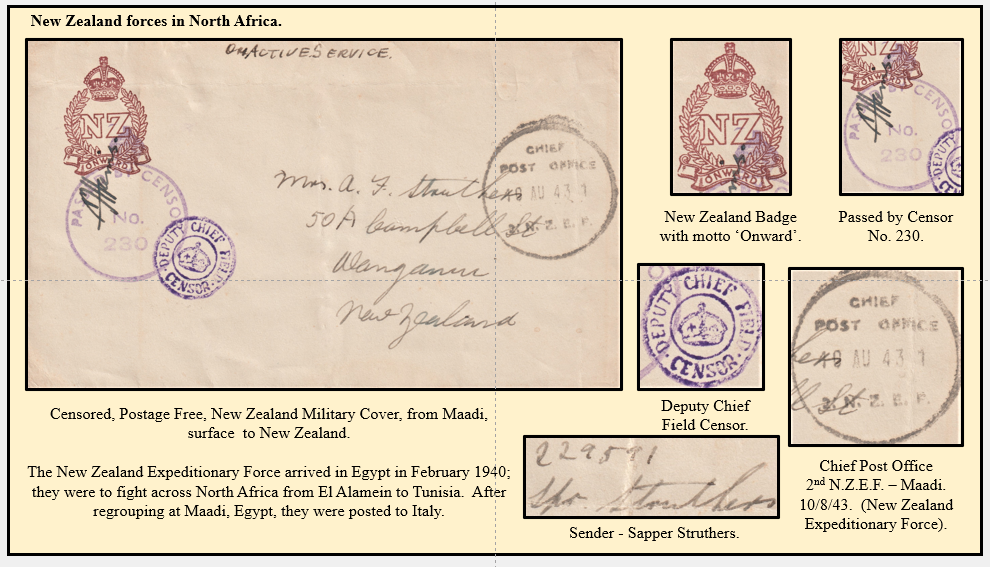 New Zealand forces in North Africa.
ON ACTIVE SERVICE.
NZ
ONWARD
PASSED BY CENSOR
No.
230
DEPUTY CHIEF FIELD CENSOR
CHIEF
POST OFFICE
AU 43 1
2. N. Z. E. F.
Mrs. A. F. Struthers
50A Campbell St
Wanganui
New Zealand
NZ
ONWARD
New Zealand Badge
with motto ‘Onward’.
ONWARD
PASSED BY CENSOR
No.
230
DEPUTY
Passed by Censor
No. 230.
DEPUTY CHIEF FIELD CENSOR
Deputy Chief
Field Censor.
CHIEF
POST OFFICE
AU 43 1
2. N. Z. E. F.
Chief Post Office
2nd N.Z.E.F. – Maadi.
10/8/43. (New Zealand
Expeditionary Force).
Censored, Postage Free, New Zealand Military Cover, from Maadi,
surface to New Zealand.
The New Zealand Expeditionary Force arrived in Egypt in February 1940;
they were to fight across North Africa from El Alamein to Tunisia. After
regrouping at Maadi, Egypt, they were posted to Italy.
229591
Spr. Struthers
Sender - Sapper Struthers.